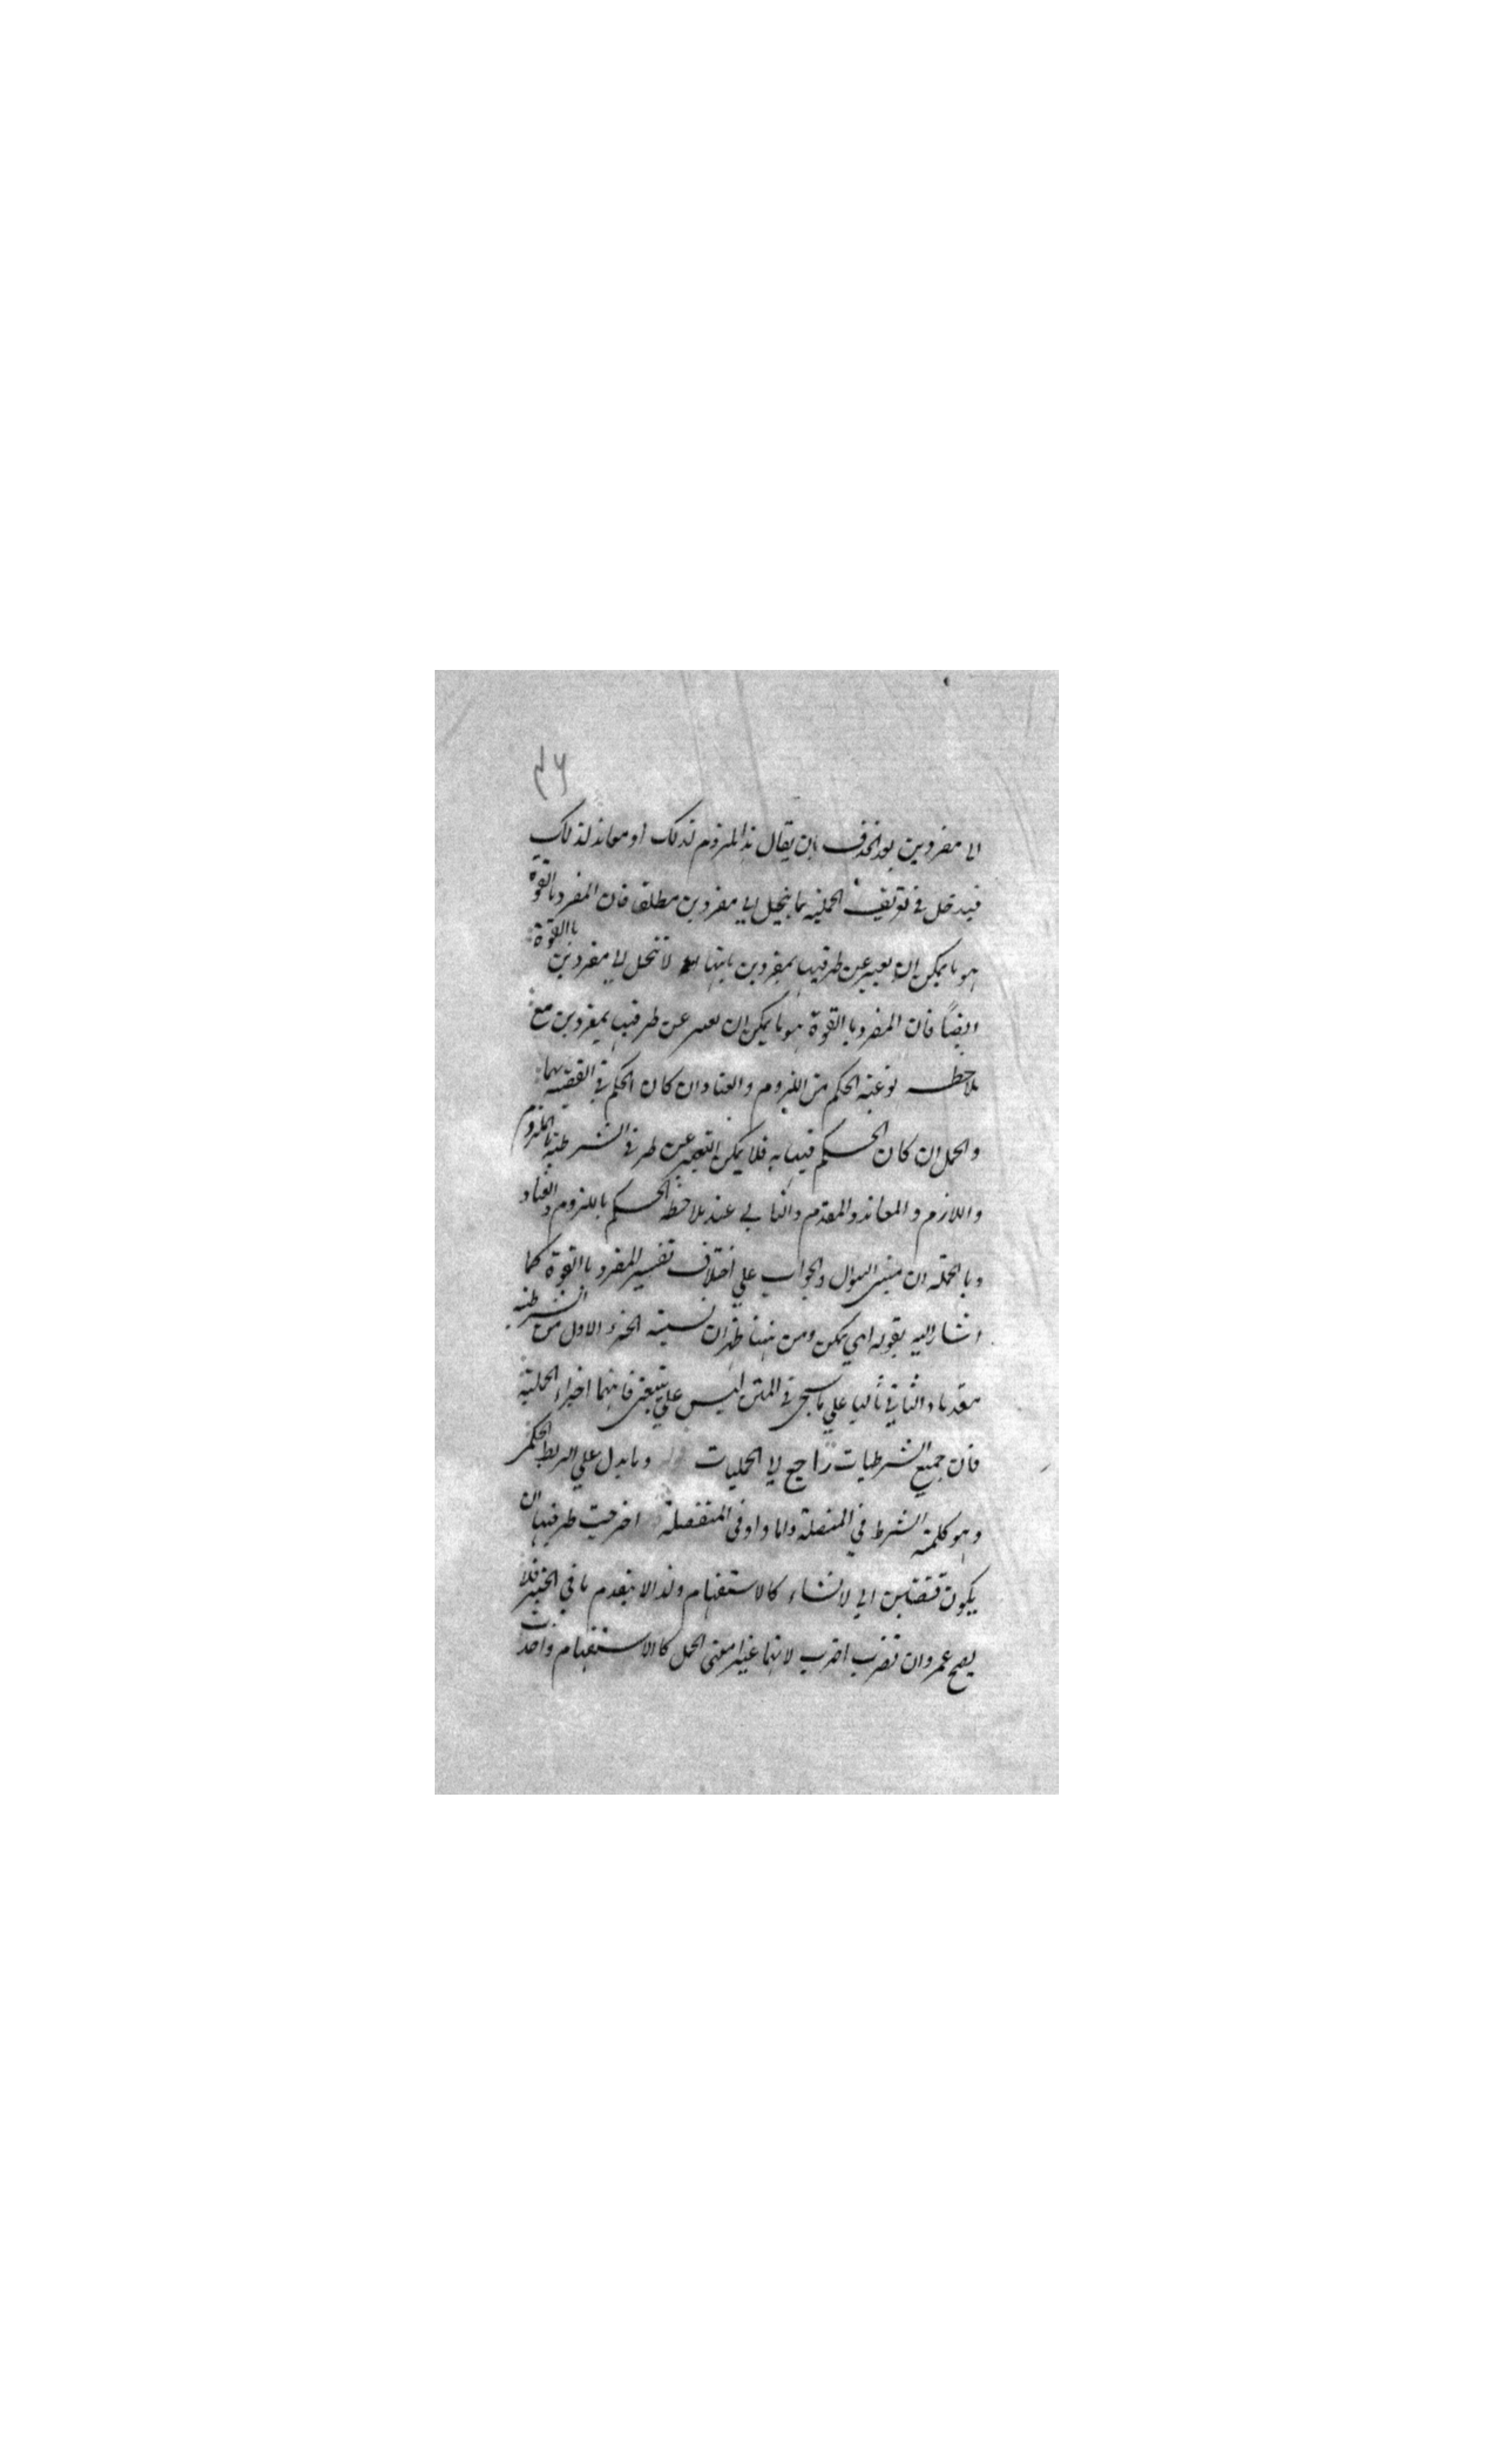 ۴۶
الى مفردين بعد الحذف بان يقال هذا ملزوم لذلك او معاند لذلك
فيدخل في تعريف الحملية بما ينحل الى مفردين مطلقا فان المفرد بالقوة
هو ما يمكن ان يعبر عن طرفيها بمفردين بانها لا تنحل الى مفردين بالقوة
ايضا فان المفرد بالقوة هو ما يمكن ان يعبر عن طرفيها بمفردين مع
ملاحظه نوعية الحكم من اللزوم والعناد ان كان الحكم في القضية بهما
والحمل ان كان الحكم فيها به فلا يمكن التعبير عن طرفي الشرطية بالملزوم
واللازم والمعاند والمقدم والتالي عند ملاحظة الحكم باللزوم والعناد
وبالجملة ان مبنى السؤال والجواب على اختلاف تفسير المفرد بالقوة كما
اشار اليه بقوله اي يمكن ومن ههنا ظهر ان تسمية الجزء الاول من الشرطية
مقدما والثاني تاليا على ما سيجي في المتن ليس على فانهما اجزاء الحملية
فان جميع الشرطيات راجع الى الحمليات وما يدل على الربط الحكمي
وهو كلمة الشرط في المتصلة واما واو في المنفصلة اخرجت طرفيها ان
يكون قضيتين الى الانشاء كالاستفهام ولذا لا يتقدم ما في الخبر فلا
يصح عمروا ان تضرب اضرب لانها غيرا معنى الحمل كالاستفهام واحدث